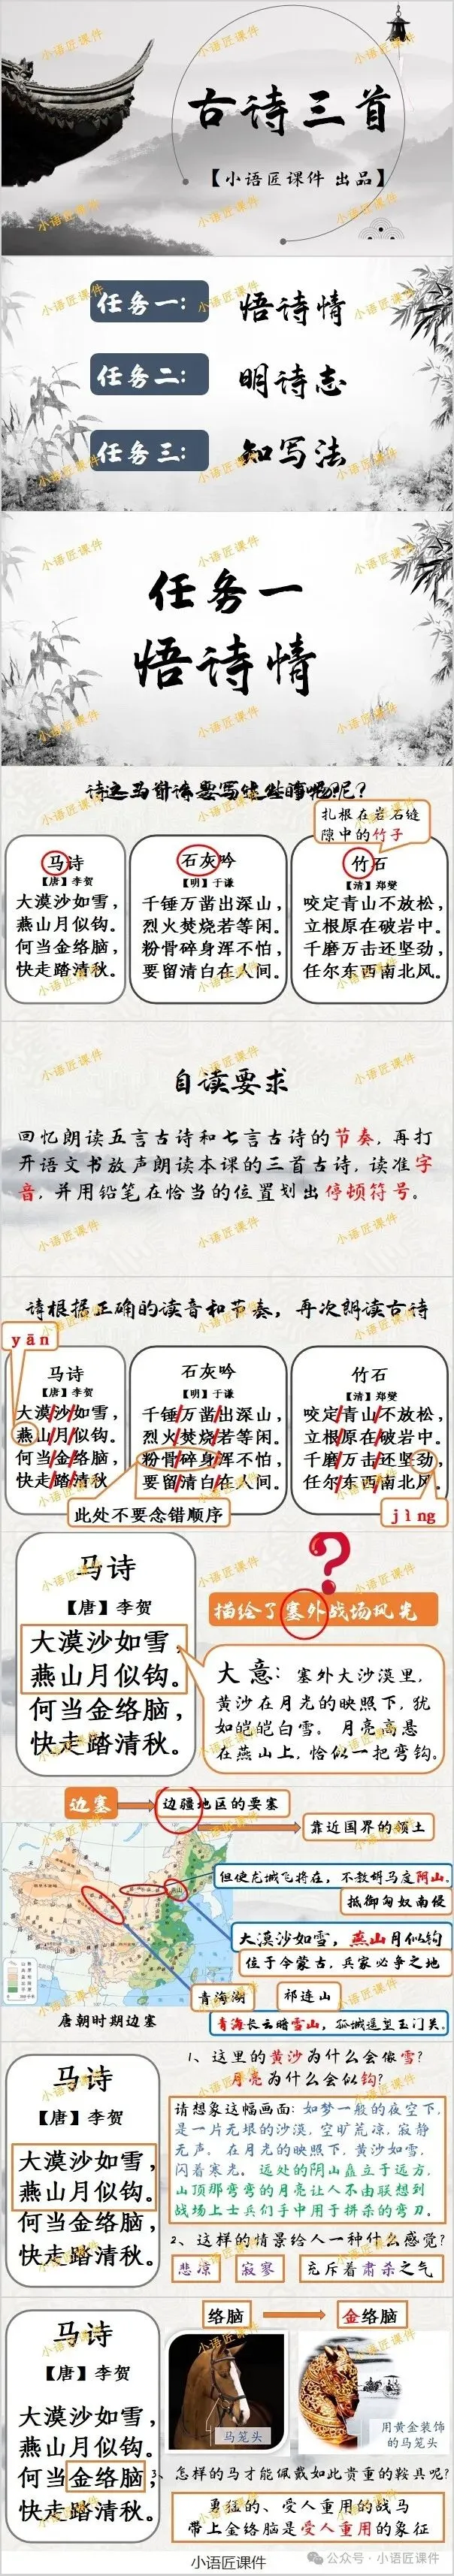 古诗三首
【小语匠课件 出品】
任务一：
悟诗情
任务二：
明诗志
任务三：
知写法
任务一
悟诗情
扎根在岩石缝
隙中的竹子
马诗
【唐】李贺
大漠沙如雪，
燕山月似钩。
何当金络脑，
快走踏清秋。
石灰吟
【明】于谦
千锤万凿出深山，
烈火焚烧若等闲。
粉骨碎身浑不怕，
要留清白在人间。
竹石
【清】郑燮
咬定青山不放松，
立根原在破岩中。
千磨万击还坚劲，
任尔东西南北风。
自读要求
回忆朗读五言古诗和七言古诗的节奏，再打
开语文书放声朗读本课的三首古诗，读准字
音，并用铅笔在恰当的位置划出停顿符号。
请根据正确的读音和节奏，再次朗读古诗
yān
马诗
【唐】李贺
大漠/沙/如雪，
燕山/月/似钩。
何当/金/络脑，
快走/踏/清秋。
石灰吟
【明】于谦
千锤/万凿/出深山，
烈火/焚烧/若等闲。
粉骨/碎身/浑不怕，
要留/清白/在人间。
竹石
【清】郑燮
咬定/青山/不放松，
立根/原在/破岩中。
千磨/万击/还坚劲，
任尔/东西/南北风。
此处不要念错顺序
jìng
马诗
【唐】李贺
大漠沙如雪，
燕山月似钩。
何当金络脑，
快走踏清秋。
？
描绘了塞外战场风光
大意：塞外大沙漠里，
黄沙在月光的映照下，犹
如皑皑白雪。月亮高悬
在燕山上，恰似一把弯钩。
边塞
边疆地区的要塞
靠近国界的领土
但使龙城飞将在，不教胡马度阴山。
抵御匈奴南侵
大漠沙如雪，燕山月似钩
位于今蒙古，兵家必争之地
青海湖
祁连山
唐朝时期边塞
青海长云暗雪山，孤城遥望玉门关。
马诗
【唐】李贺
大漠沙如雪，
燕山月似钩。
何当金络脑，
快走踏清秋。
1、这里的黄沙为什么会像雪？
月亮为什么会似钩？
请想象这幅画面：如梦一般的夜空下，
是一片无垠的沙漠，空旷荒凉，寂静
无声。在月光的映照下，黄沙如雪，
闪着寒光。远处的阴山矗立于远方，
山顶那弯弯的月亮让人不由联想到
战场上士兵们手中用于拼杀的弯刀。
2、这样的情景给人一种什么感觉？
悲凉
寂寥
充斥着肃杀之气
马诗
【唐】李贺
大漠沙如雪，
燕山月似钩。
何当金络脑，
快走踏清秋。
络脑
金络脑
马笼头
用黄金装饰
的马笼头
3、怎样的马才能佩戴如此贵重的鞍具呢？
勇猛的、受人重用的战马
带上金络脑是受人重用的象征
小语匠课件
公众号·小语匠课件